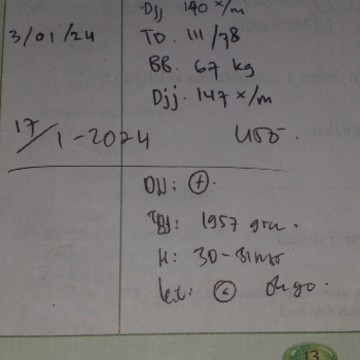 Djj 140 x/m
3/01/24 TD. 111/78
BB. 67 kg
Djj. 147 x/m
17/1-2024 USG.
DJJ: (+).
TBJ: 1957 gru.
H: 30-31
13